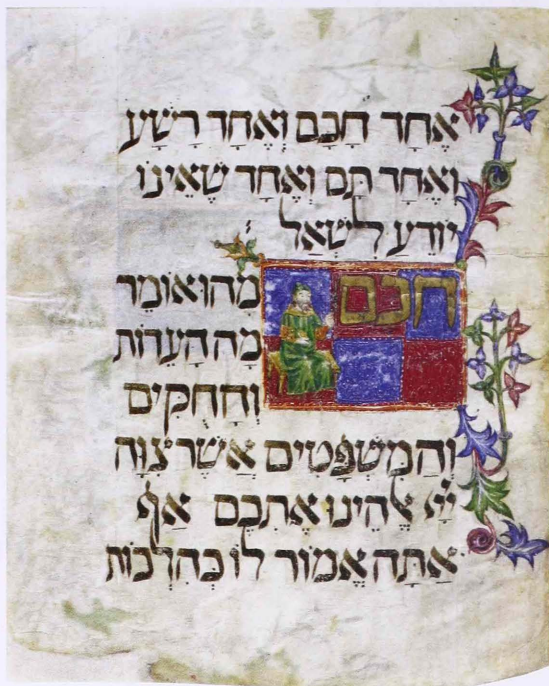 אֶחָד חָכָם וְאֶחָד רָשָׁע
וְאֶחָד תָּם וְאֶחָד שֶׁאֵינוֹ
יוֹדֵעַ לִשְׁאַל
חכם מַה הוּא אוֹמֵר
מָה הָעֵדֹוֹת
וְהַחֻקִּים
וְהַמִשְׁפָּטִים אֲשֶׁר צִוָּה
יְיָ אֱלֹהֵינוּ אֶתְכֶם אַף
אַתָּה אֱמוֹר לוֹ כְּהִלְכוֹת